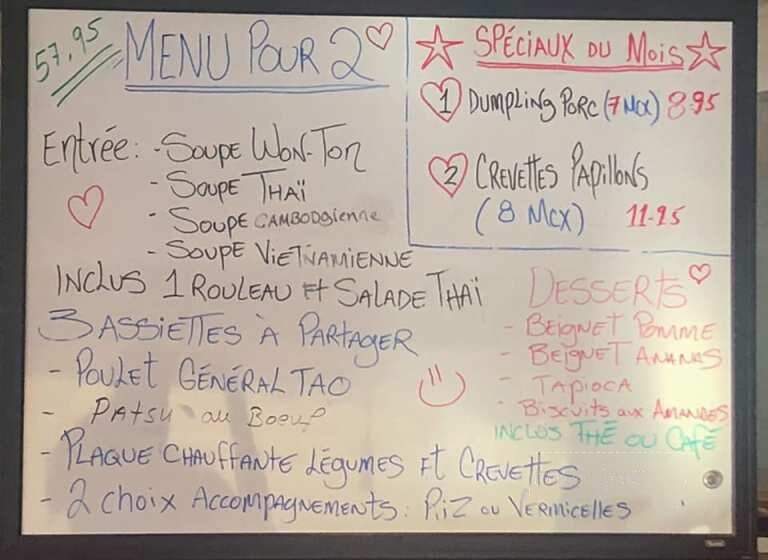 57,95
MENU POUR 2
Entrée: - SOUPE WON-TON
- SOUPE THAÏ
- SOUPE CAMBODGIENNE
- SOUPE VIETNAMIENNE
INCLUS 1 ROULEAU ET SALADE THAÏ
3 ASSIETTES À PARTAGER
- POULET GÉNÉRAL TAO
- PATSU au BOEUF
- PLAQUE CHAUFFANTE LÉGUMES ET CREVETTES
- 2 CHOIX ACCOMPAGNEMENTS: RIZ OU VERMICELLES
SPÉCIAUX DU MOIS
1 DUMPLING PORC (7 MCX) 8.95
2 CREVETTES PAPILLONS
(8 MCX) 11.95
DESSERTS
- BEIGNET POMME
- BEIGNET ANANAS
- TAPIOCA
- BISCUITS AUX AMANDES
INCLUS THÉ OU CAFÉ